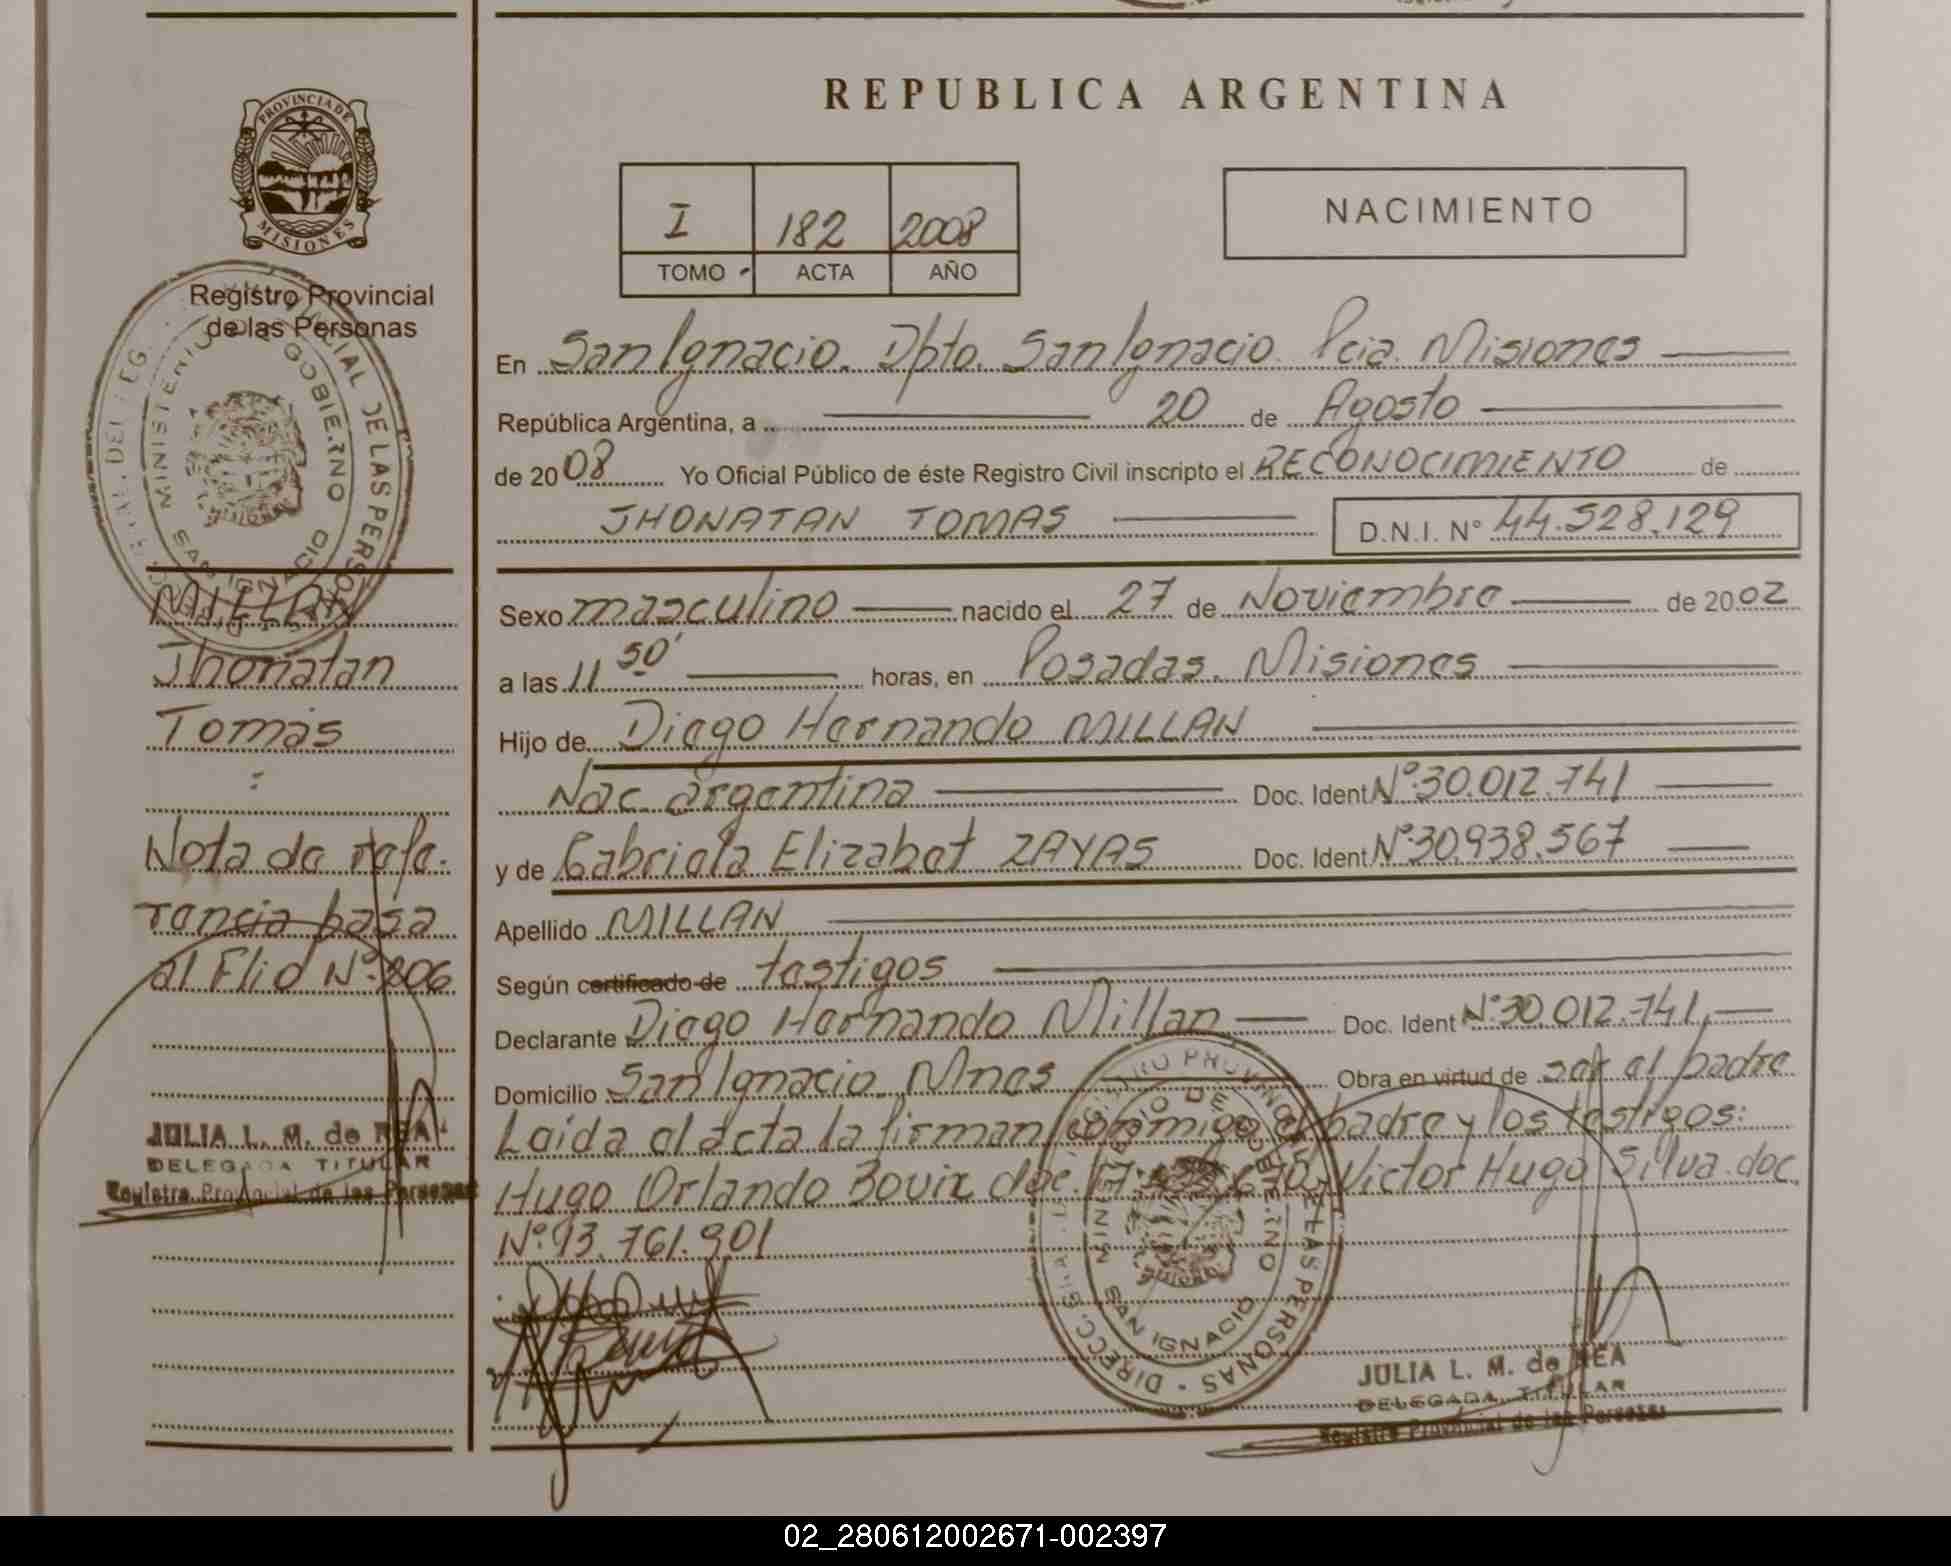 REPUBLICA ARGENTINA
PROVINCIA DE
MISIONES
Registro Provincial
de las Personas
I 182 2008
TOMO ACTA AÑO
NACIMIENTO
En San Ignacio. Dpto. San Ignacio. Pcia. Misiones
República Argentina, a 20 de Agosto
de 2008 Yo Oficial Público de éste Registro Civil inscripto el RECONOCIMIENTO de
JHONATAN TOMAS D.N.I. N° 44.528.129
Sexo masculino nacido el 27 de Noviembre de 2002
a las 11 50' horas, en Posadas. Misiones
Hijo de Diego Hernando MILLAN
Nac. argentina Doc. Ident N°.30.012.741
y de Gabriela Elizabet ZAYAS Doc. Ident N°.30.938.567
Apellido MILLAN
Según certificado de testigos
Declarante Diego Hernando Millan Doc. Ident N°.30.012.741.
Domicilio San Ignacio. Mnes Obra en virtud de ser el padre
Leida el acta la firman conmigo el padre y los testigos:
Hugo Orlando Bouix doc. Victor Hugo Silva. doc.
N°.93.761.901
MILLAN
Jhonatan
Tomás
:
Nota de refe.
rencia pasa
al Flio N°.206
JULIA L. M. de REA
DELEGADA TITULAR
Registro Provincial de las Personas
MINISTERIO DE GOBIERNO
SAN IGNACIO
DIRECC. GRAL. DEL REGISTRO PROVINCIAL DE LAS PERSONAS
JULIA L. M. de REA
DELEGADA TITULAR
Registro Provincial de las Personas
02_280612002671-002397